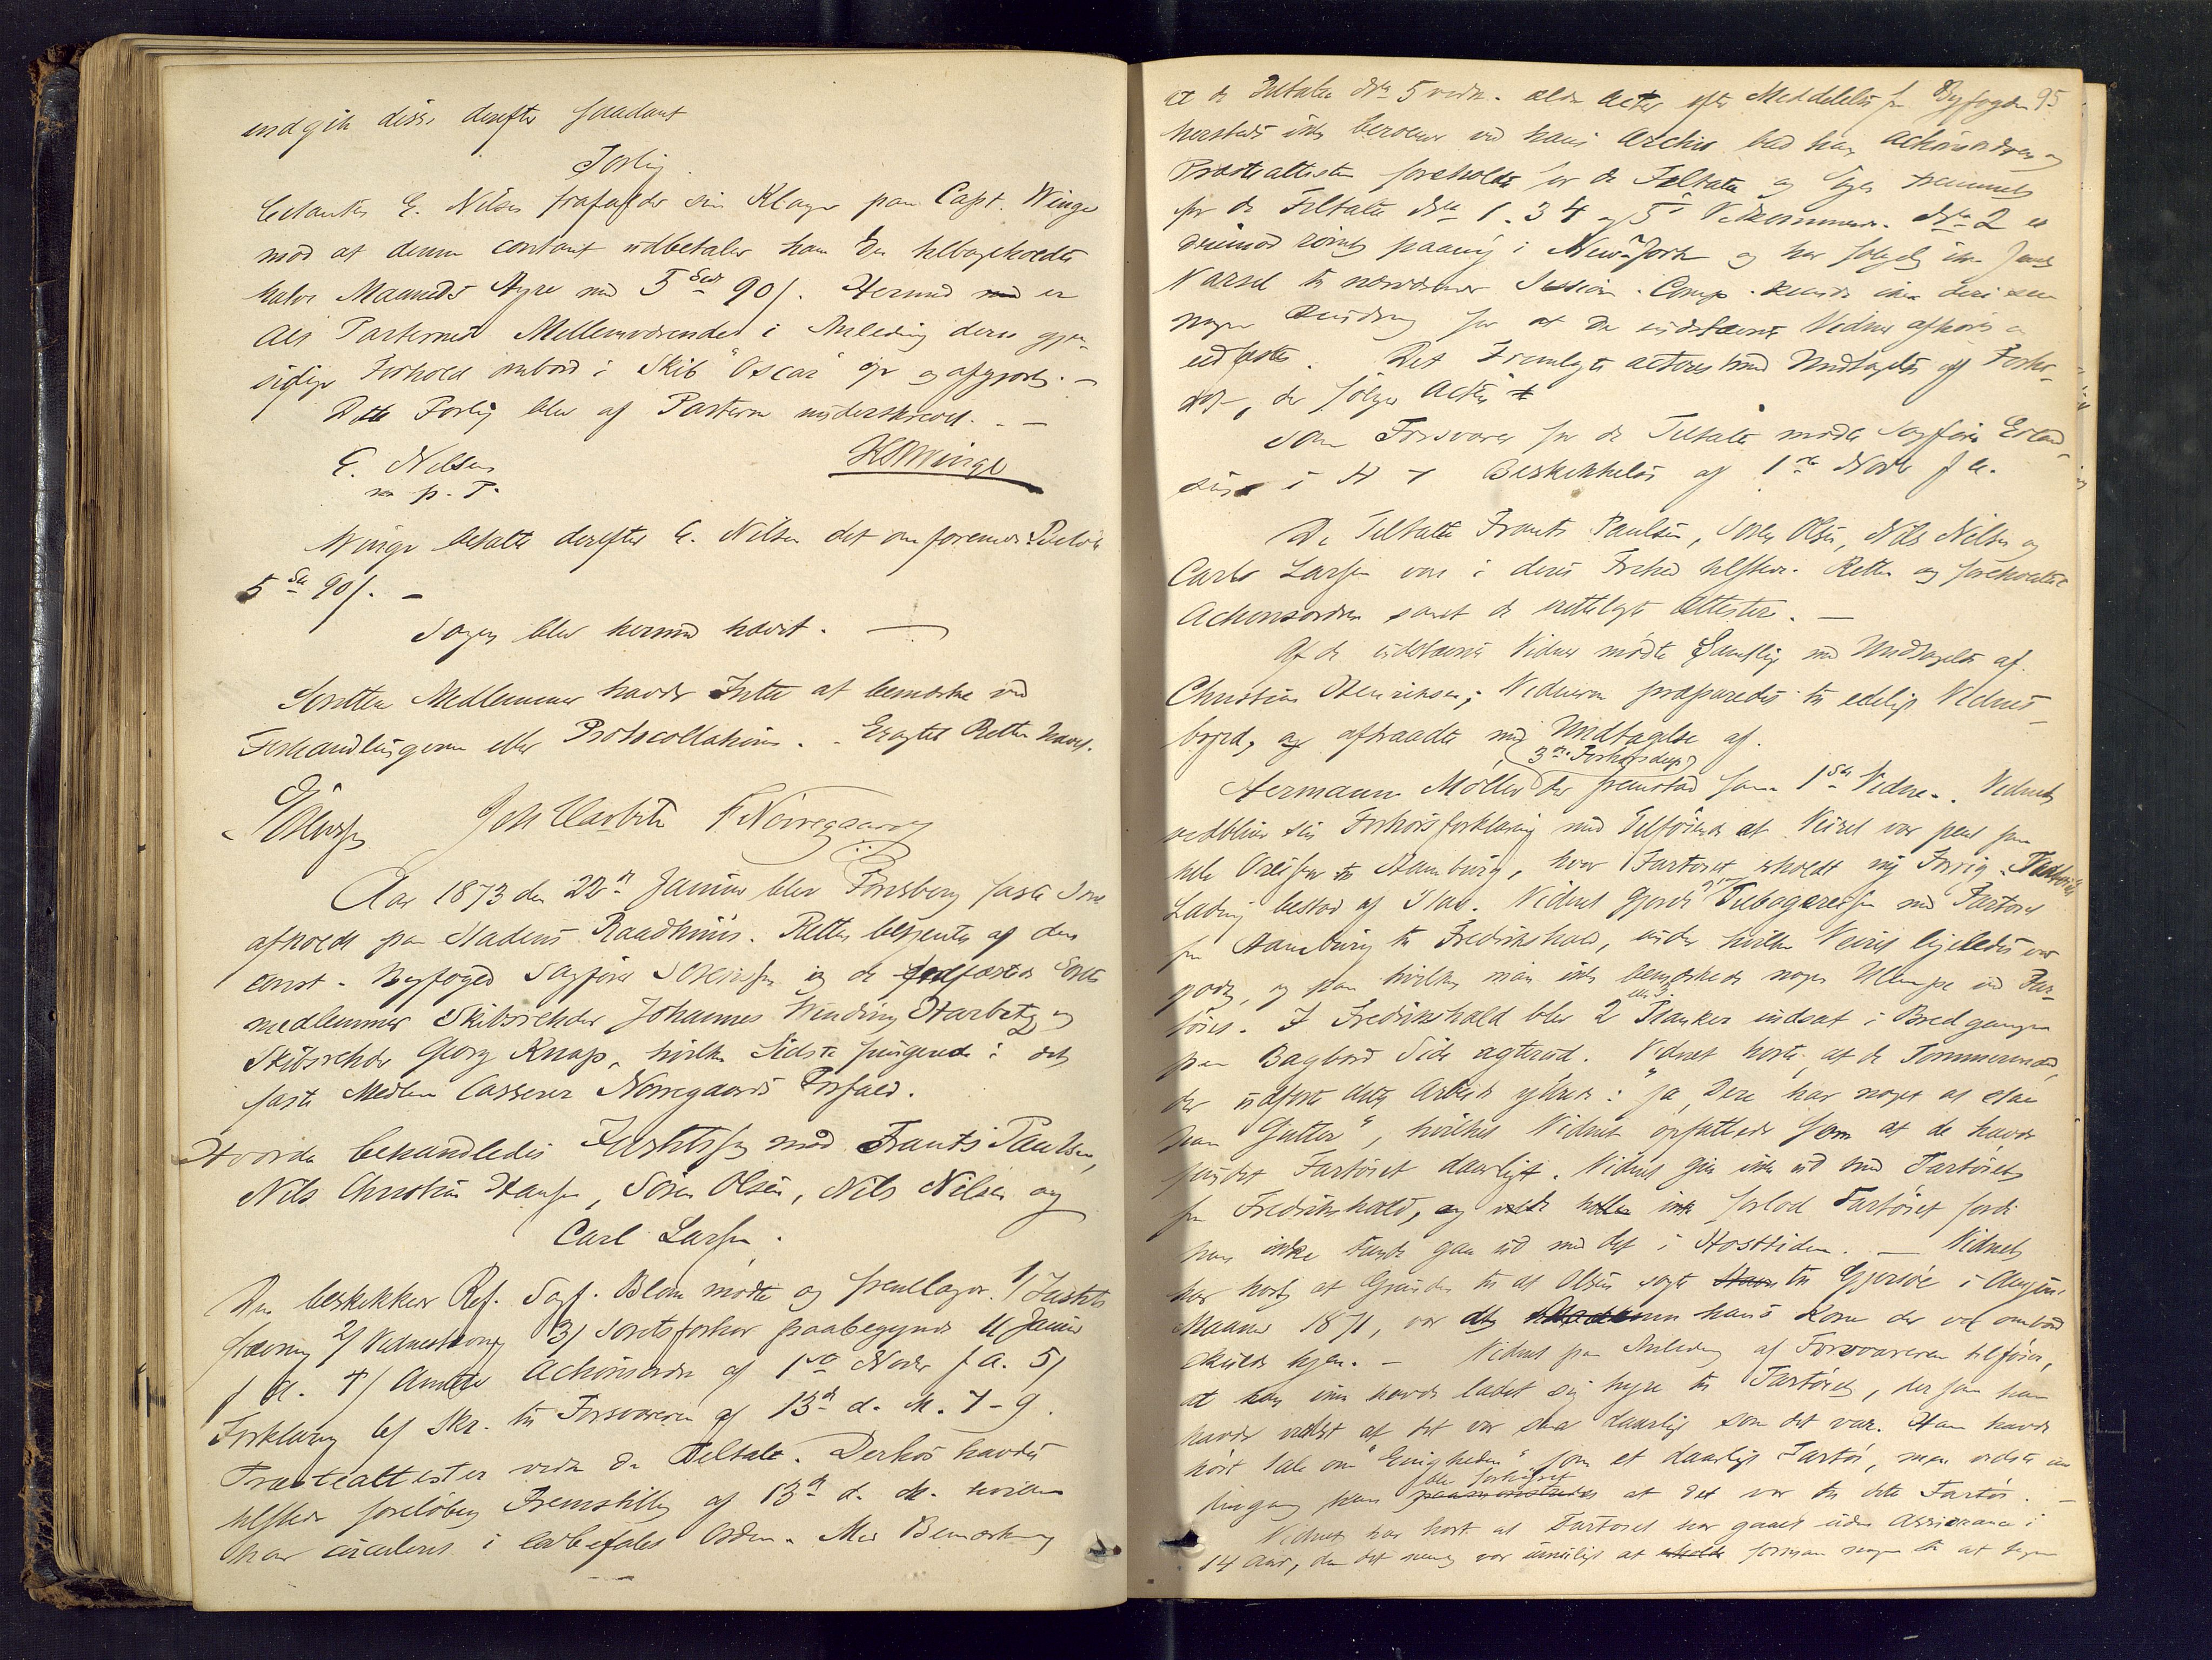 indgik disse derefter saadant
Forlig.
Citanten E. Nilsen frafalder sin Klage paa Capt. Winge
mod at denne contant udbetaler ham den tilbageholdte
halve Maaneds Hyre med 5 Spd 90 s. Hermed er
alt Parternes Mellemværende i Anledning deres gjen-
sidige Forhold ombord i Skib "Oscar" op og afgjort. —
Dette Forlig blev af Parterne underskrevet. —
E. Nilsen
m. p. P.
Winge
Winge betalte derefter E. Nilsen det omforenede Beløb
5 Spd 90 s. —
Sagen blev hermed hævet. —
Rettens Medlemmer havde Intet at bemærke ved
Forhandlingerne eller Protocollationen. - Eragtet Retten hævet.
Joh Harbitz F Nørregaard
Aar 1873 den 22de Januar blev Tønsberg faste Søret
afholdt paa Stadens Raadhuus. Retten betjentes af den
const. Byfoged Sagfører og de edfæstede Sørets
medlemmer Skibsrheder Johannes Winding Harbitz og
Skibsrheder Georg Knap, hvilken Sidste fungerede i det
faste Medlem Casserer Nørregaards Forfald.
Hvorda behandledes Justitssag mod Frants Paulsen,
Nils Christian Hansen, Søren Olsen, Nils Nilsen og
Carl Larsen.
Den beskikkede Ref. Sagf. Blom mødte og fremlagde 1/ Justits
stævning 2/ Vidnestævning 3/ Søretsforhør paabegyndt 4 Januar
f. A. 4/ Amtets Actionsordre af 1ste Novbr f. A. 5/
Forklaring 6/ Skr. til Forsvareren af 13de d. M. 7-9.
Præsteattester vedk. de Tiltalte. Derhos havdes
tilstede foreløbig Fremstilling af 13de d. M. hvilken
har circuleret i lovbefalet Orden. Med Bemærkning
95
at de Tiltalte No 5 vedk. ældre Acter efter Meddelelse fra Byfogden
hersteds ikke beroede ved hans Archiv bad han Actionsordren og
Præsteattesten foreholdt for de Tiltalte og Sagen fremmet
for de Tiltalte No 1. 3 4 og 5's Vedkommende. No 2 er
derimod rømt paany i New-York og har følgelig ikke faaet
Varsel til nærværende Session. Comp. kunde ikke deri see
nogen Hindring for at de indstævnte Vidner afhøres og
edfæstes. Det Fremlagte acteres med Undtagelse af Forhø-
ret, der følger Acten
Som Forsvarer for de Tiltalte mødte Sagfører Erland-
sen i H t Beskikkelse af 1ste Novbr f. A.
De Tiltalte Frants Paulsen, Søren Olsen, Nils Nilsen og
Carl Larsen var i deres Frihed tilstede i Retten og foreholdtes
Actionsordren samt de irettelagte Attester. —
Af de indstævnte Vidner mødte Samtlige med Undtagelse af
Christian Henriksen; Vidnerne præparedes til edeligt Vidnes-
byrd, og aftraadte med Undtagelse af
Hermann Møller (3de Forhørsdep) der fremstod som 1ste Vidne. Vidnet
vedbliver sin Forhørsforklaring med Tilføiende at Veiret var pent paa
hele Opreisen til Hamburg, hvor Fartøiet erholdt ny Forrig. Fartøiets
Ladning bestod af Stav. Vidnet gjorde Tilbagereisen med Fartøiet
fra Hamburg til Fredrikshald, under hvilken Veiret ligeledes var
godt, og paa hvilken man ikke bemærkede nogen Ulempe ved Far-
tøiet. I Fredrikshald blev 2 eller 3 Planker indsat i Bredgangen
paa Bagbord Side agterud. Vidnet hørte, at de Tømmermænd,
der udførte dette Arbeide yttrede: "ja, Dere har noget at
paa Gutter", hvilket Vidnet opfattede som at de havde
fundet Fartøiet daarligt. Vidnet gik ikke ud med Fartøiet
fra Fredrikshald, og forlod Fartøiet fordi
han ikke turde gaa ud med det i Høsttiden. — Vidnet
har hørt at Grunden til at Olsen søgte til Gjersøe i August
Maaned 1871, var at hans Kone der var ombord
skulde hjem. — Vidnet paa Anledning af Forsvareren tilføier,
at han ikke havde ladet sig hyre til Fartøiet, dersom han
havde vidst at det var saa daarligt som det var. Han havde
hørt Tale om "Enigheden" som et daarligt Fartøi, men vidste ikke
dengang han blev forhyret at det var til dette Fartøi. —
Vidnet har hørt at Fartøiet har gaaet uden Assurance i
14 Aar, da det nemlig var umuligt at formaa nogen til at tegne